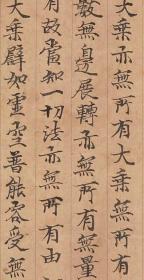 大乘亦無所有大乘無所有
數無邊展轉亦無所有無量
有故當知一切法亦無所有由
大乘譬如虛空普能容受無